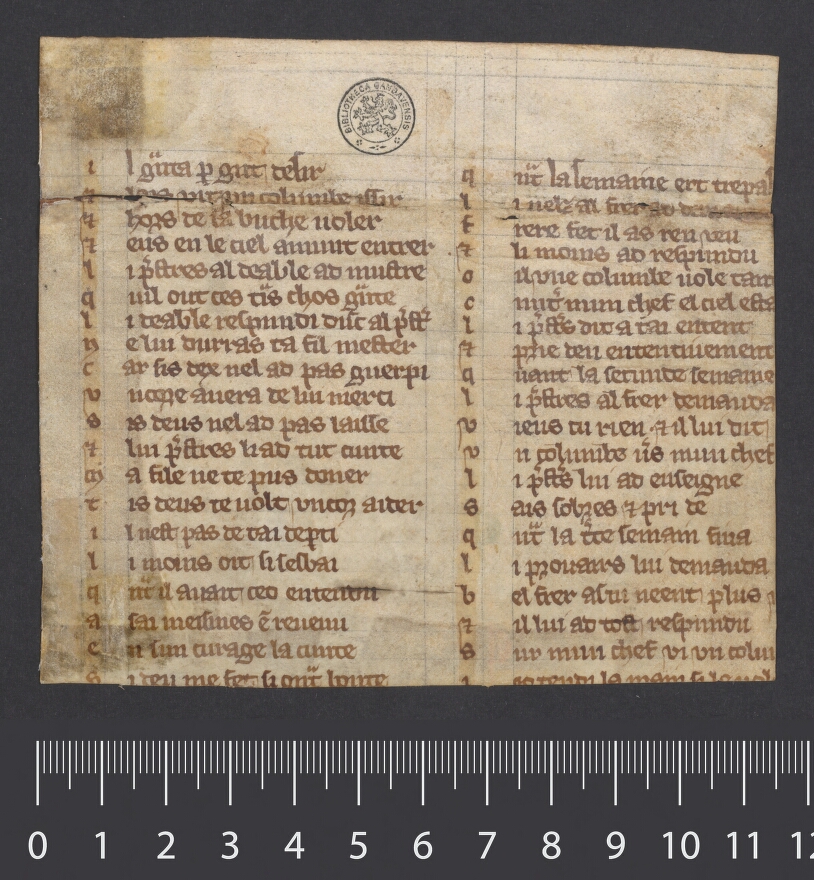 BIBLIOTHECA GANDAVENSIS
i l gͣnta p gͣnt desir
⁊ hors vit un columbe issir
⁊ hors de sa buche uoler
⁊ eus en le ciel amunt entrer
l i p̃stres al deable ad mustre
q uil out ces t̃is chos gͣnte
l i deable respundi dũc al p̃st̃
n e lui durras ta fil mester
c ar sis dex nel ad pas guerpi
v ncore auera de lui merci
s is deus nel ad pas laisse
⁊ lui p̃stres li ad tut cunte
m a file ne te puis doner
t is deus te uolt uncor aider
i l nest pas de tai departi
l i moins oit si sesbai
q nt̃ il auait ceo entendu
a sai meismes ẽ reuenu
e n sun curage la cunte
s i deu me fet si gͣnt bunte
q nt̃ la semaine ert trepas
l i uels al frer ad
f rere fet il as ren ueu
⁊ li moins ad respundu
o il une columbe uole
c nut̃ mun chef el ciel esta
l i p̃st̃s dit a tai entent
⁊ prie deu ententiuement
q uant la secunde semaine
l i p̃stres al frer demanda
v ieus tu rien ⁊ il lui dit
v n columbe ũs mun chef
l i p̃st̃s lui ad enseigne
s ais sobres ⁊ pri de
q nt̃ la t̃ce semain fina
l i prouairs lui demanda
b el frer as tu neent plus
⁊ il lui ad tost respundu
s ur mun chef vi vn colum
0 1 2 3 4 5 6 7 8 9 10 11 12